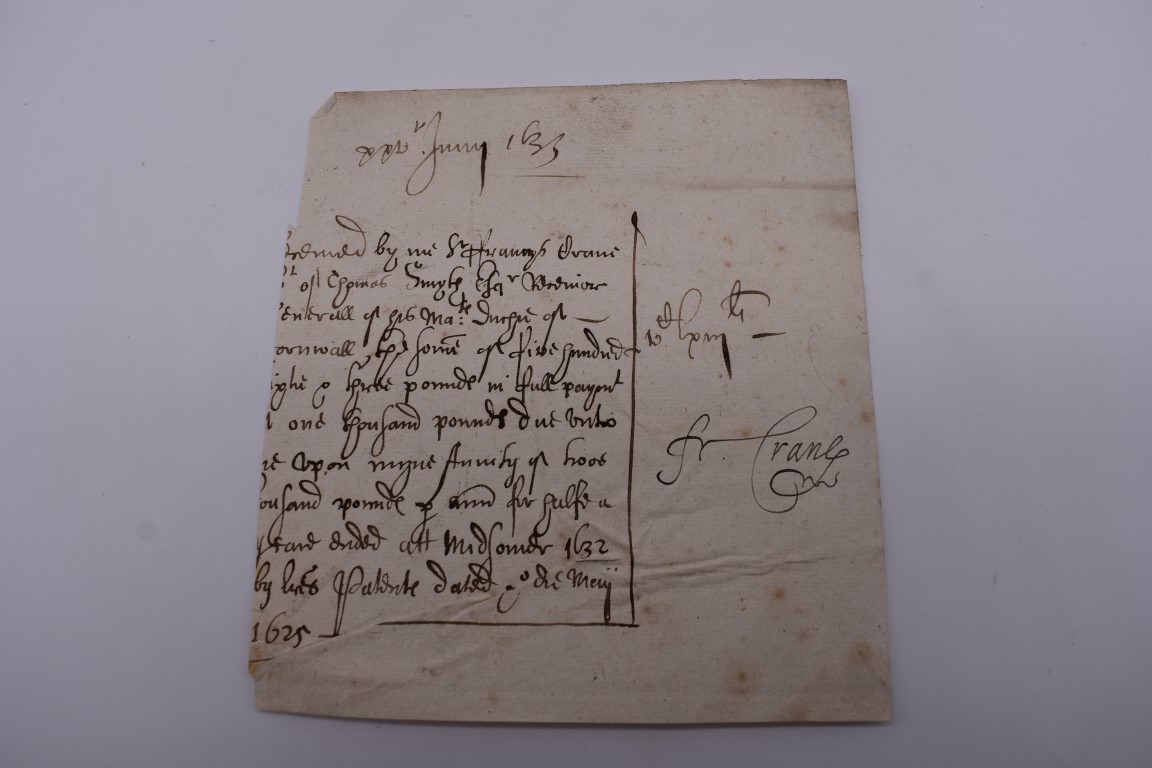 Junij 1633
by me Sr Francys Crane
of Thomas Smyth Esqr Receivor
enerall of his Mats: Duchie of
ornwall, the some of five hundred
three pounds in full paymt
one thousand pounds due unto
upon myne Anuity of twoe
ousand pounds p ann for halfe a
yeare ended att Midsomer 1632
by lres Patente dated die Maij
1625
li
fr. Crane